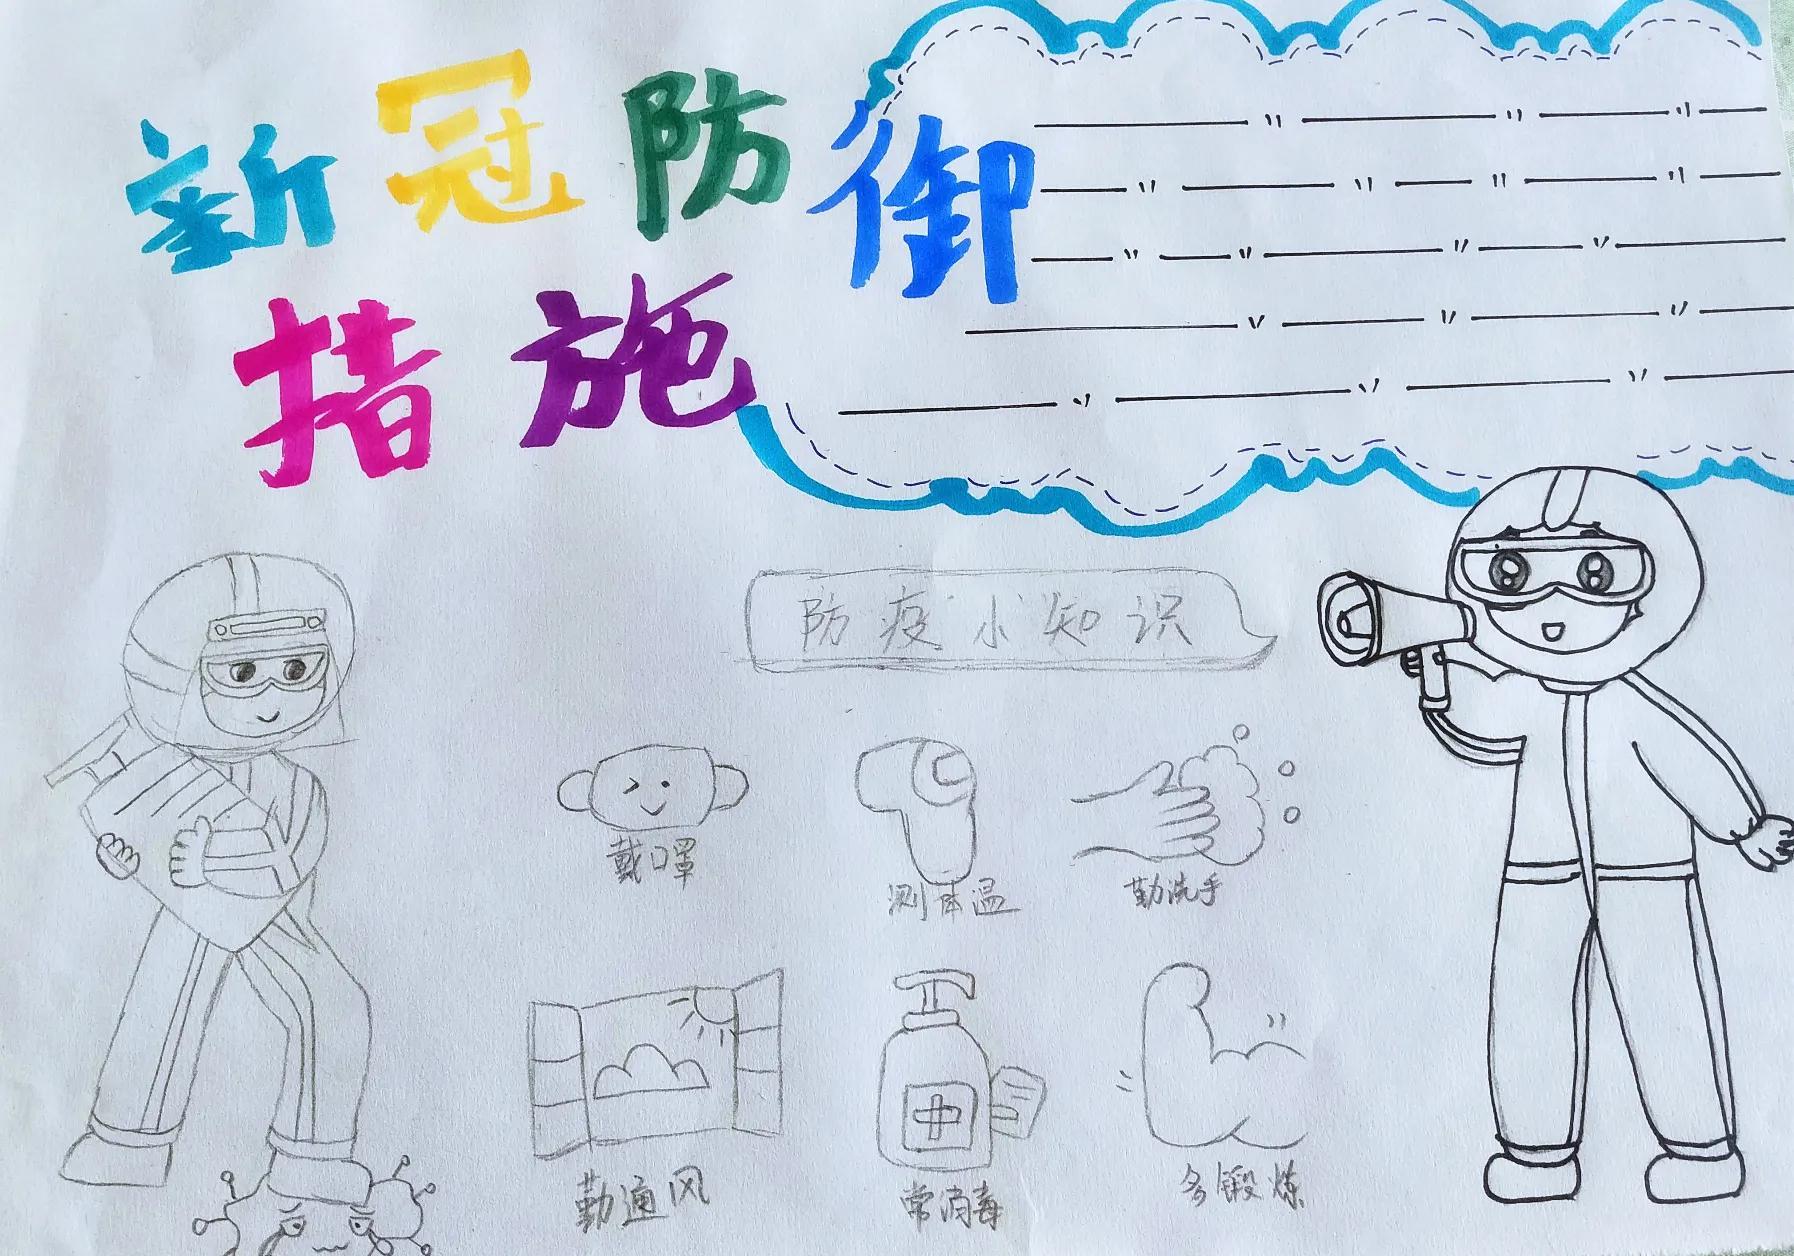 新冠防御
措施
防疫小知识
戴口罩
测体温
勤洗手
勤通风
常消毒
多锻炼